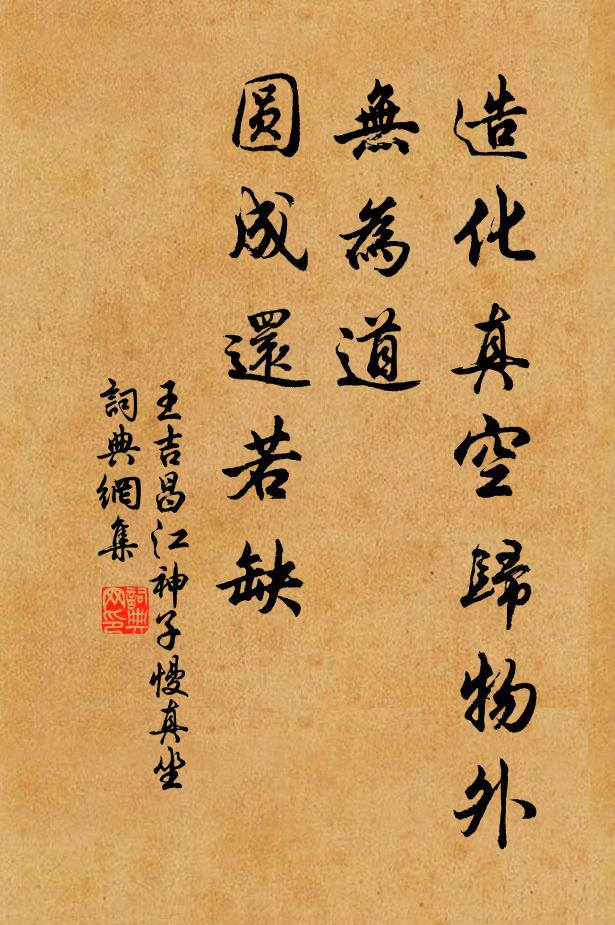 造化真空歸物外
無為道
圓成還若缺
王吉昌江神子慢真坐
詞典網集
詞典網印